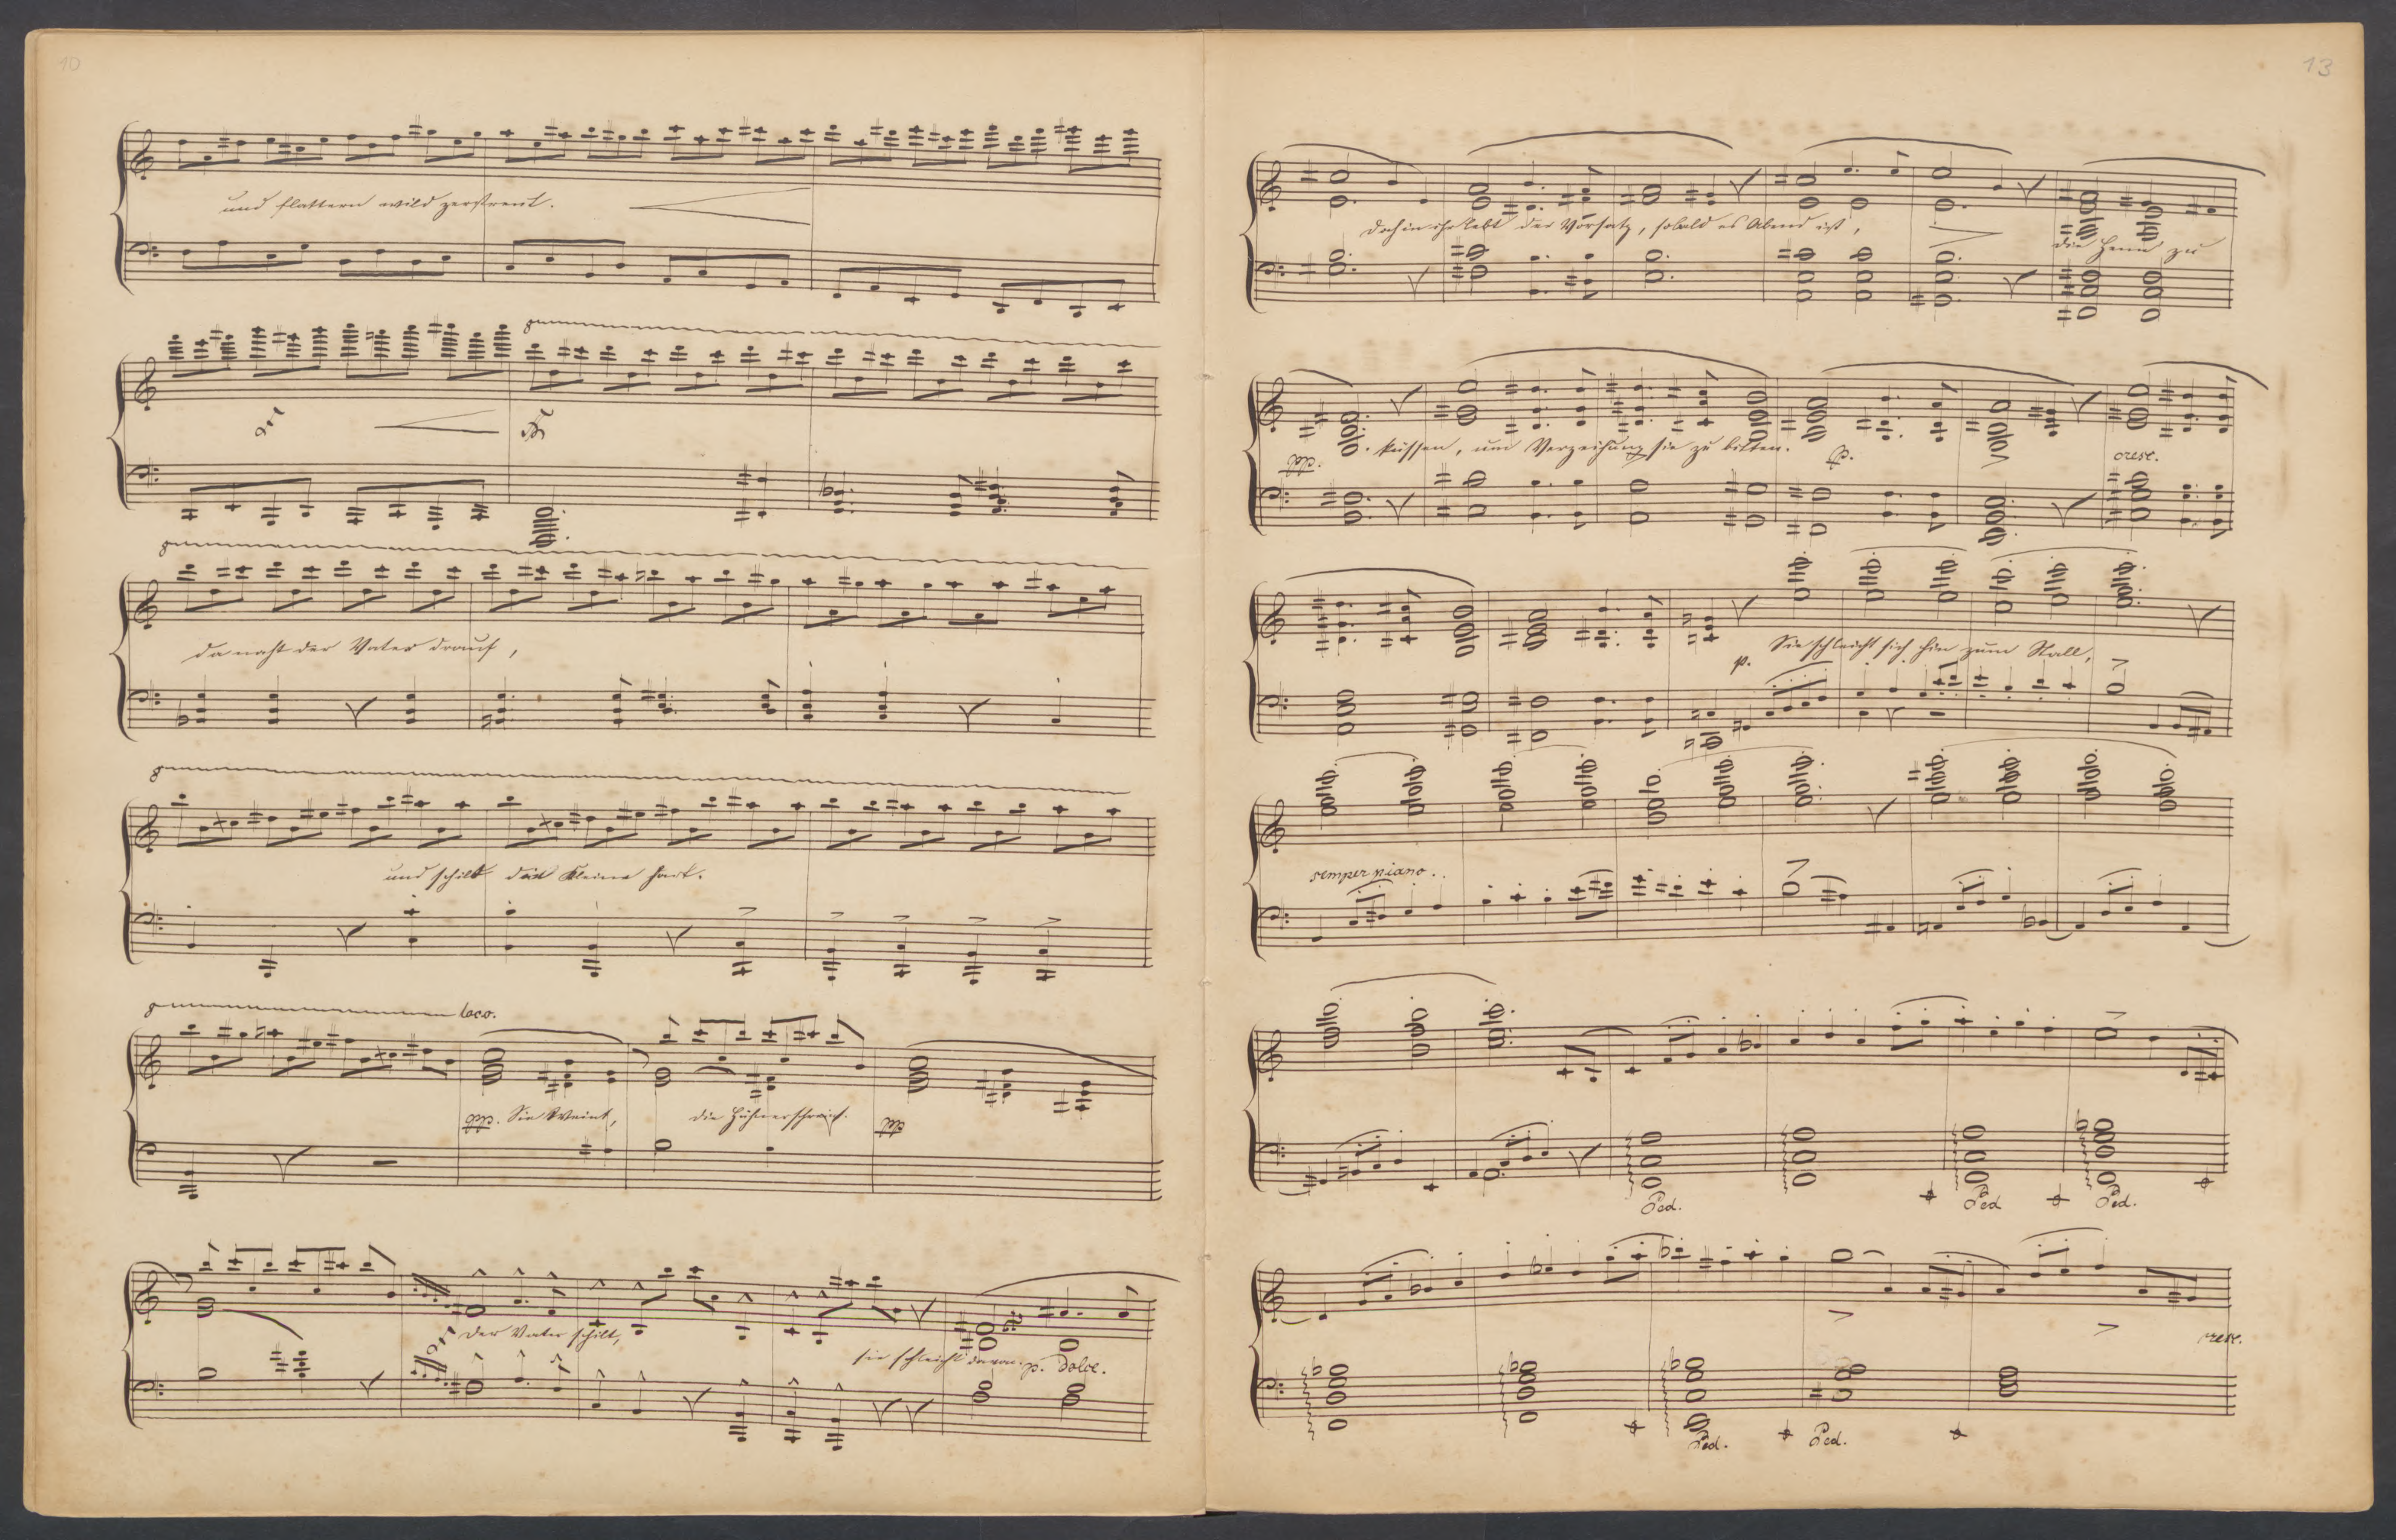 10
und flattern wild zerstreut.
da naht der Vater drauf,
und schilt das Kleine hart.
loco.
ppp. Sie weint,
die Hühner schrein.
ppp
Der Vater schilt,
sie schleicht davon. p. dolce.
13
Doch in ihr lebt der Vorsatz, sobald es Abend ist,
die Henne zu
ppp. küssen, um Verzeihung sie zu bitten.
p.
cresc.
p.
Sie schleicht sich hin zum Stall,
semper piano.
Ped.
Ped
Ped.
cresc.
Ped.
Ped.